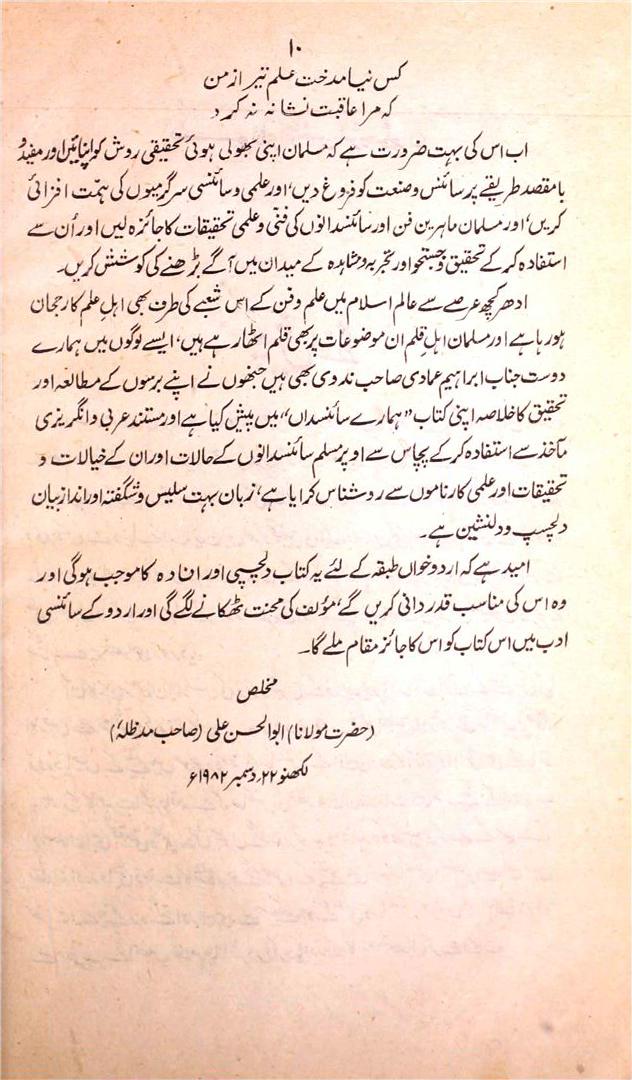 ۱۰
کس نیامدخت علم تیر از من
کہ مرا عاقبت نشانہ نہ کرد
اب اس کی بہت ضرورت ہے کہ مسلمان اپنی بھولی ہوئی تحقیقی روش کو اپنائیں اور مفید و
بامقصد طریقے پر سائنس و صنعت کو فروغ دیں، اور علمی و سائنسی سرگرمیوں کی ہمت افزائی
کریں، اور مسلمان ماہرین فن اور سائنسدانوں کی فنی و علمی تحقیقات کا جائزہ لیں اور اُن سے
استفادہ کر کے تحقیق و جستجو اور تجربہ و مشاہدہ کے میدان میں آگے بڑھنے کی کوشش کریں۔
ادھر کچھ عرصے سے عالم اسلام میں علم و فن کے اس شعبے کی طرف بھی اہلِ علم کا رجحان
ہو رہا ہے اور مسلمان اہلِ قلم ان موضوعات پر بھی قلم اٹھا رہے ہیں، ایسے لوگوں میں ہمارے
دوست جناب ابراہیم عمادی صاحب ندوی بھی ہیں جنھوں نے اپنے برسوں کے مطالعہ اور
تحقیق کا خلاصہ اپنی کتاب ”ہمارے سائنسداں“ میں پیش کیا ہے اور مستند عربی و انگریزی
مآخذ سے استفادہ کر کے پچاس سے اوپر مسلم سائنسدانوں کے حالات اور ان کے خیالات و
تحقیقات اور علمی کارناموں سے روشناس کرایا ہے، زبان بہت سلیس و شگفتہ اور انداز بیان
دلچسپ و دلنشین ہے۔
امید ہے کہ اردو خواں طبقہ کے لئے یہ کتاب دلچسپی اور افادہ کا موجب ہوگی اور
وہ اس کی مناسب قدردانی کریں گے، مؤلف کی محنت ٹھکانے لگے گی اور اردو کے سائنسی
ادب میں اس کتاب کو اس کا جائز مقام ملے گا۔
مخلص
(حضرت مولانا) ابوالحسن علی (صاحب مدظلہٗ)
لکھنو ۲۲؍ دسمبر ۱۹۸۲ء